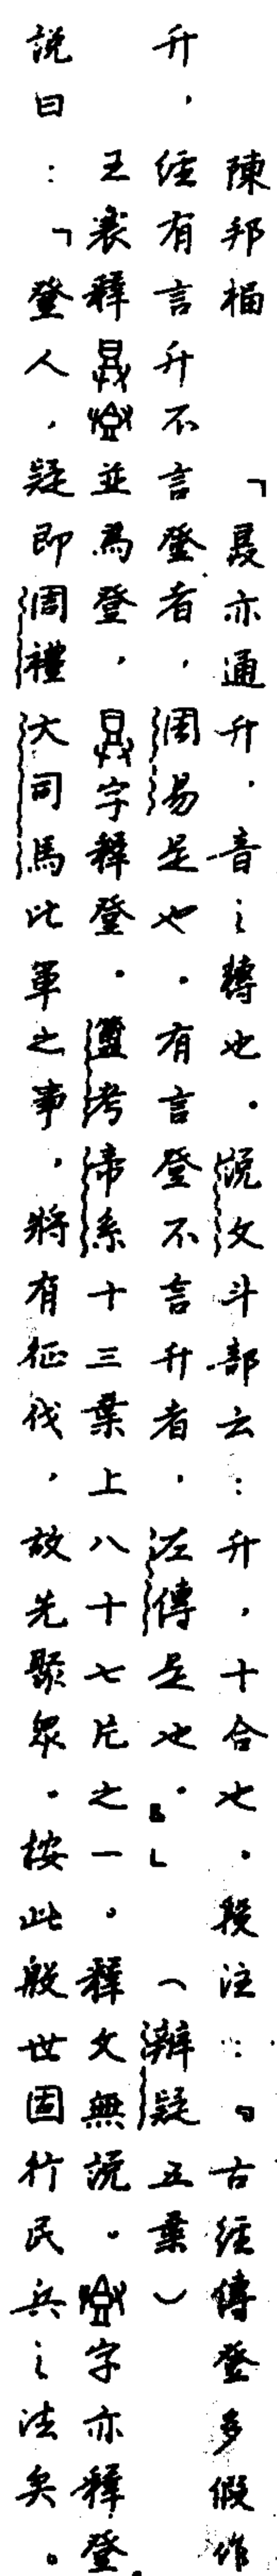 陳邦福　「𢍰亦通升，音之轉也。說文斗部云：升，十合也。段注：『古經傳登多假作
升，經有言升不言登者，周易是也。有言登不言升者，左傳是也。』」（辨疑五葉）
王襄釋並為登，字釋登。簠考帝系十三葉上八十七片之一。釋文無說。字亦釋登。
說曰：「登人，疑即周禮大司馬比軍之事，將有征伐，故先聚眾。按此殷世固行民兵之法矣。